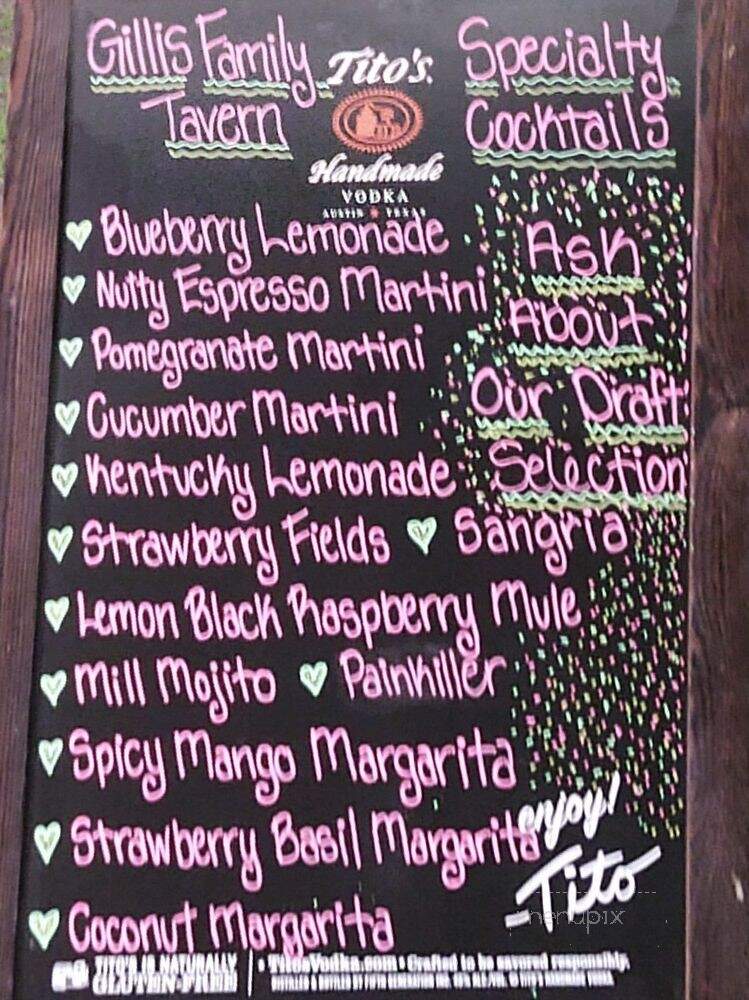 Gillis Family
Tavern
Tito's
Handmade
VODKA
AUSTIN ★ TEXAS
Specialty
Cocktails
Blueberry Lemonade
Nutty Espresso Martini
Pomegranate Martini
Cucumber Martini
Kentucky Lemonade
Strawberry Fields ♥ Sangria
Lemon Black Raspberry Mule
Mill Mojito ♥ Painkiller
Spicy Mango Margarita
Strawberry Basil Margarita
Coconut Margarita
Ask
About
Our Draft
Selection
enjoy!
Tito
menupix
TITO'S IS NATURALLY
GLUTEN-FREE
• TitosVodka.com • Crafted to be savored responsibly.
DISTILLED & BOTTLED BY FIFTH GENERATION INC. 40% ALC./VOL. © TITO'S HANDMADE VODKA.